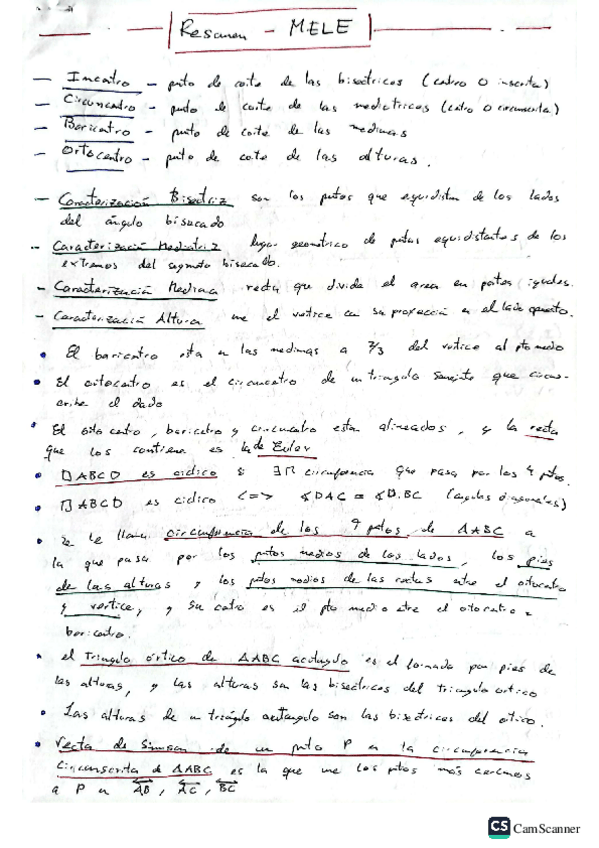 Resumen - MELE
— Incentro - pnto de corte de las bisectrices (centro O inscrita)
— Circuncentro - punto de corte de las mediatrices (centro O circunscrita)
— Baricentro - punto de corte de las medianas
— Ortocentro - pnto de corte de las alturas.
— Caracterización Bisectriz son los pntos que equidistan de los lados
del ángulo bisecado
— Caracterización Mediatriz lugar geometrico de pntos equidistantes de los
extremos del segmento bisecado.
— Caracterización Mediana recta que divide el area en partes iguales.
— Caracterización Altura une el vertice con su proyección en el lado opuesto.
• El baricentro esta en las medianas a 2/3 del vertice al pto medio
• El ortocentro es el circuncentro de un triangulo semejante que circun-
cribe el dado
• El orto centro, baricentro y circuncentro estan alineados, y la recta
que los contiene es la de Euler
• ABCD es ciclico si ∃ circunferencia que pasa por los 4 ptos.
• ABCD es ciclico <=> ∡DAC = ∡DBC (angulos diagonales)
• Se le llama circunferencia de los 9 pntos de ΔABC a
la que pasa por los pntos medios de los lados, los pies
de las alturas y los pntos medios de las rectas entre el ortocentro
y vertice, y su centro es el pto medio entre el ortocentro
baricentro.
• el triangulo órtico de ΔABC acutangulo es el formado por pies de
las alturas, y las alturas son las bisectrices del triangulo ortico
• Las alturas de un triángulo acutangulo son las bisectrices del ortico.
• recta de Simson de un pnto P en la circunferencia
circunscrita de ΔABC es la que une los pntos más cercanos
a P en AB, AC, BC
CS CamScanner